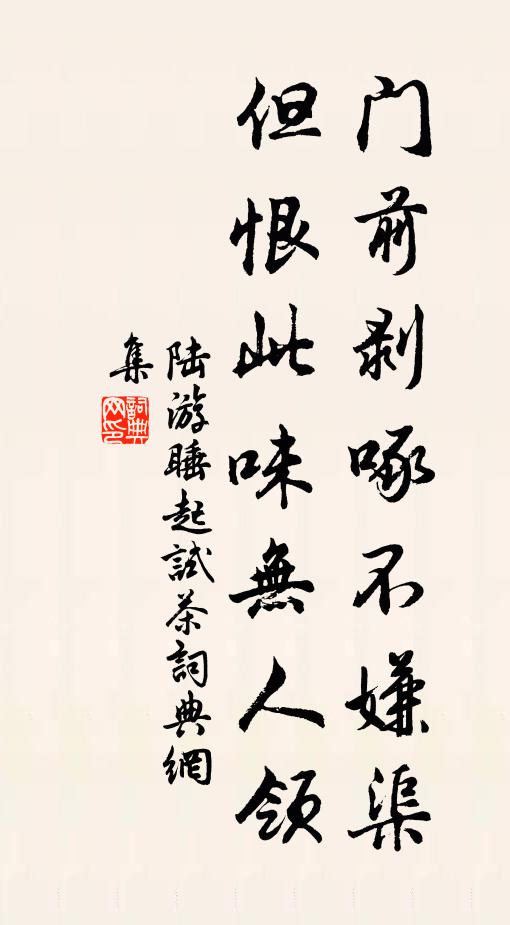 门前剥啄不嫌渠
但恨此味無人领
陆游睡起試茶詞典網
集
詞典网印